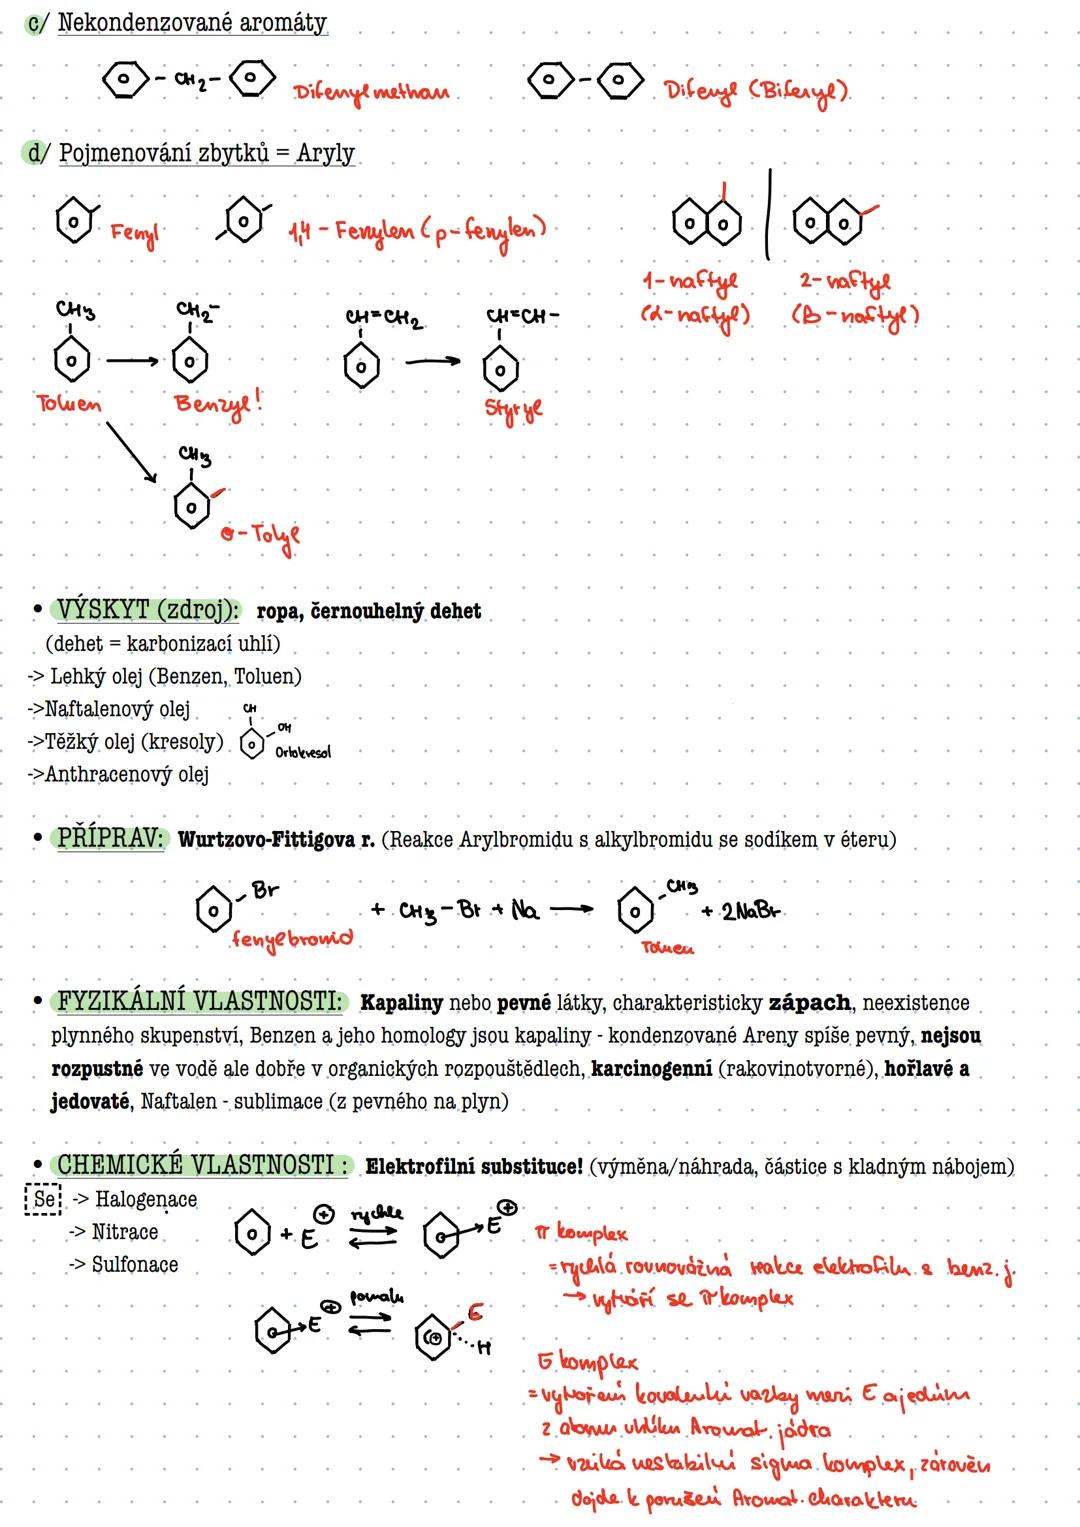 c/ Nekondenzované aromáty
- CH2 -
Difenylmethan
Difenyl (Bifenyl)
d/ Pojmenování zbytků = Aryly
Fenyl
1,4 - Fenylen (p-fenylen)
1-naftyl
(α-naftyl)
2-naftyl
(β-naftyl)
CH3
CH2-
CH=CH2
CH=CH-
Toluen
Benzyl!
Styryl
CH3
o-Tolyl
• VÝSKYT (zdroj): ropa, černouhelný dehet
(dehet = karbonizací uhlí)
-> Lehký olej (Benzen, Toluen)
->Naftalenový olej
CH
OH
->Těžký olej (kresoly)
Ortokresol
->Anthracenový olej
• PŘÍPRAV: Wurtzovo-Fittigova r. (Reakce Arylbromidu s alkylbromidu se sodíkem v éteru)
Br + CH3 - Br + Na → CH3 + 2NaBr
fenylbromid
Toluen
• FYZIKÁLNÍ VLASTNOSTI: Kapaliny nebo pevné látky, charakteristicky zápach, neexistence
plynného skupenství, Benzen a jeho homology jsou kapaliny - kondenzované Areny spíše pevný, nejsou
rozpustné ve vodě ale dobře v organických rozpouštědlech, karcinogenní (rakovinotvorné), hořlavé a
jedovaté, Naftalen - sublimace (z pevného na plyn)
• CHEMICKÉ VLASTNOSTI : Elektrofilní substituce! (výměna/náhrada, částice s kladným nábojem)
Se -> Halogenace
-> Nitrace
-> Sulfonace
+ E⊕ rychle E⊕
π komplex
= rychlá rovnovážná reakce elektrofilu s benz. j.
→ vytváří se π komplex
E⊕ pomalu E
⊕ H
σ komplex
= vytvoření kovalentní vazby mezi E a jedním
z atomu uhlíku Aromat. jádra
→ vzniká nestabilní sigma komplex, zároveň
dojde k porušení Aromat. charakteru